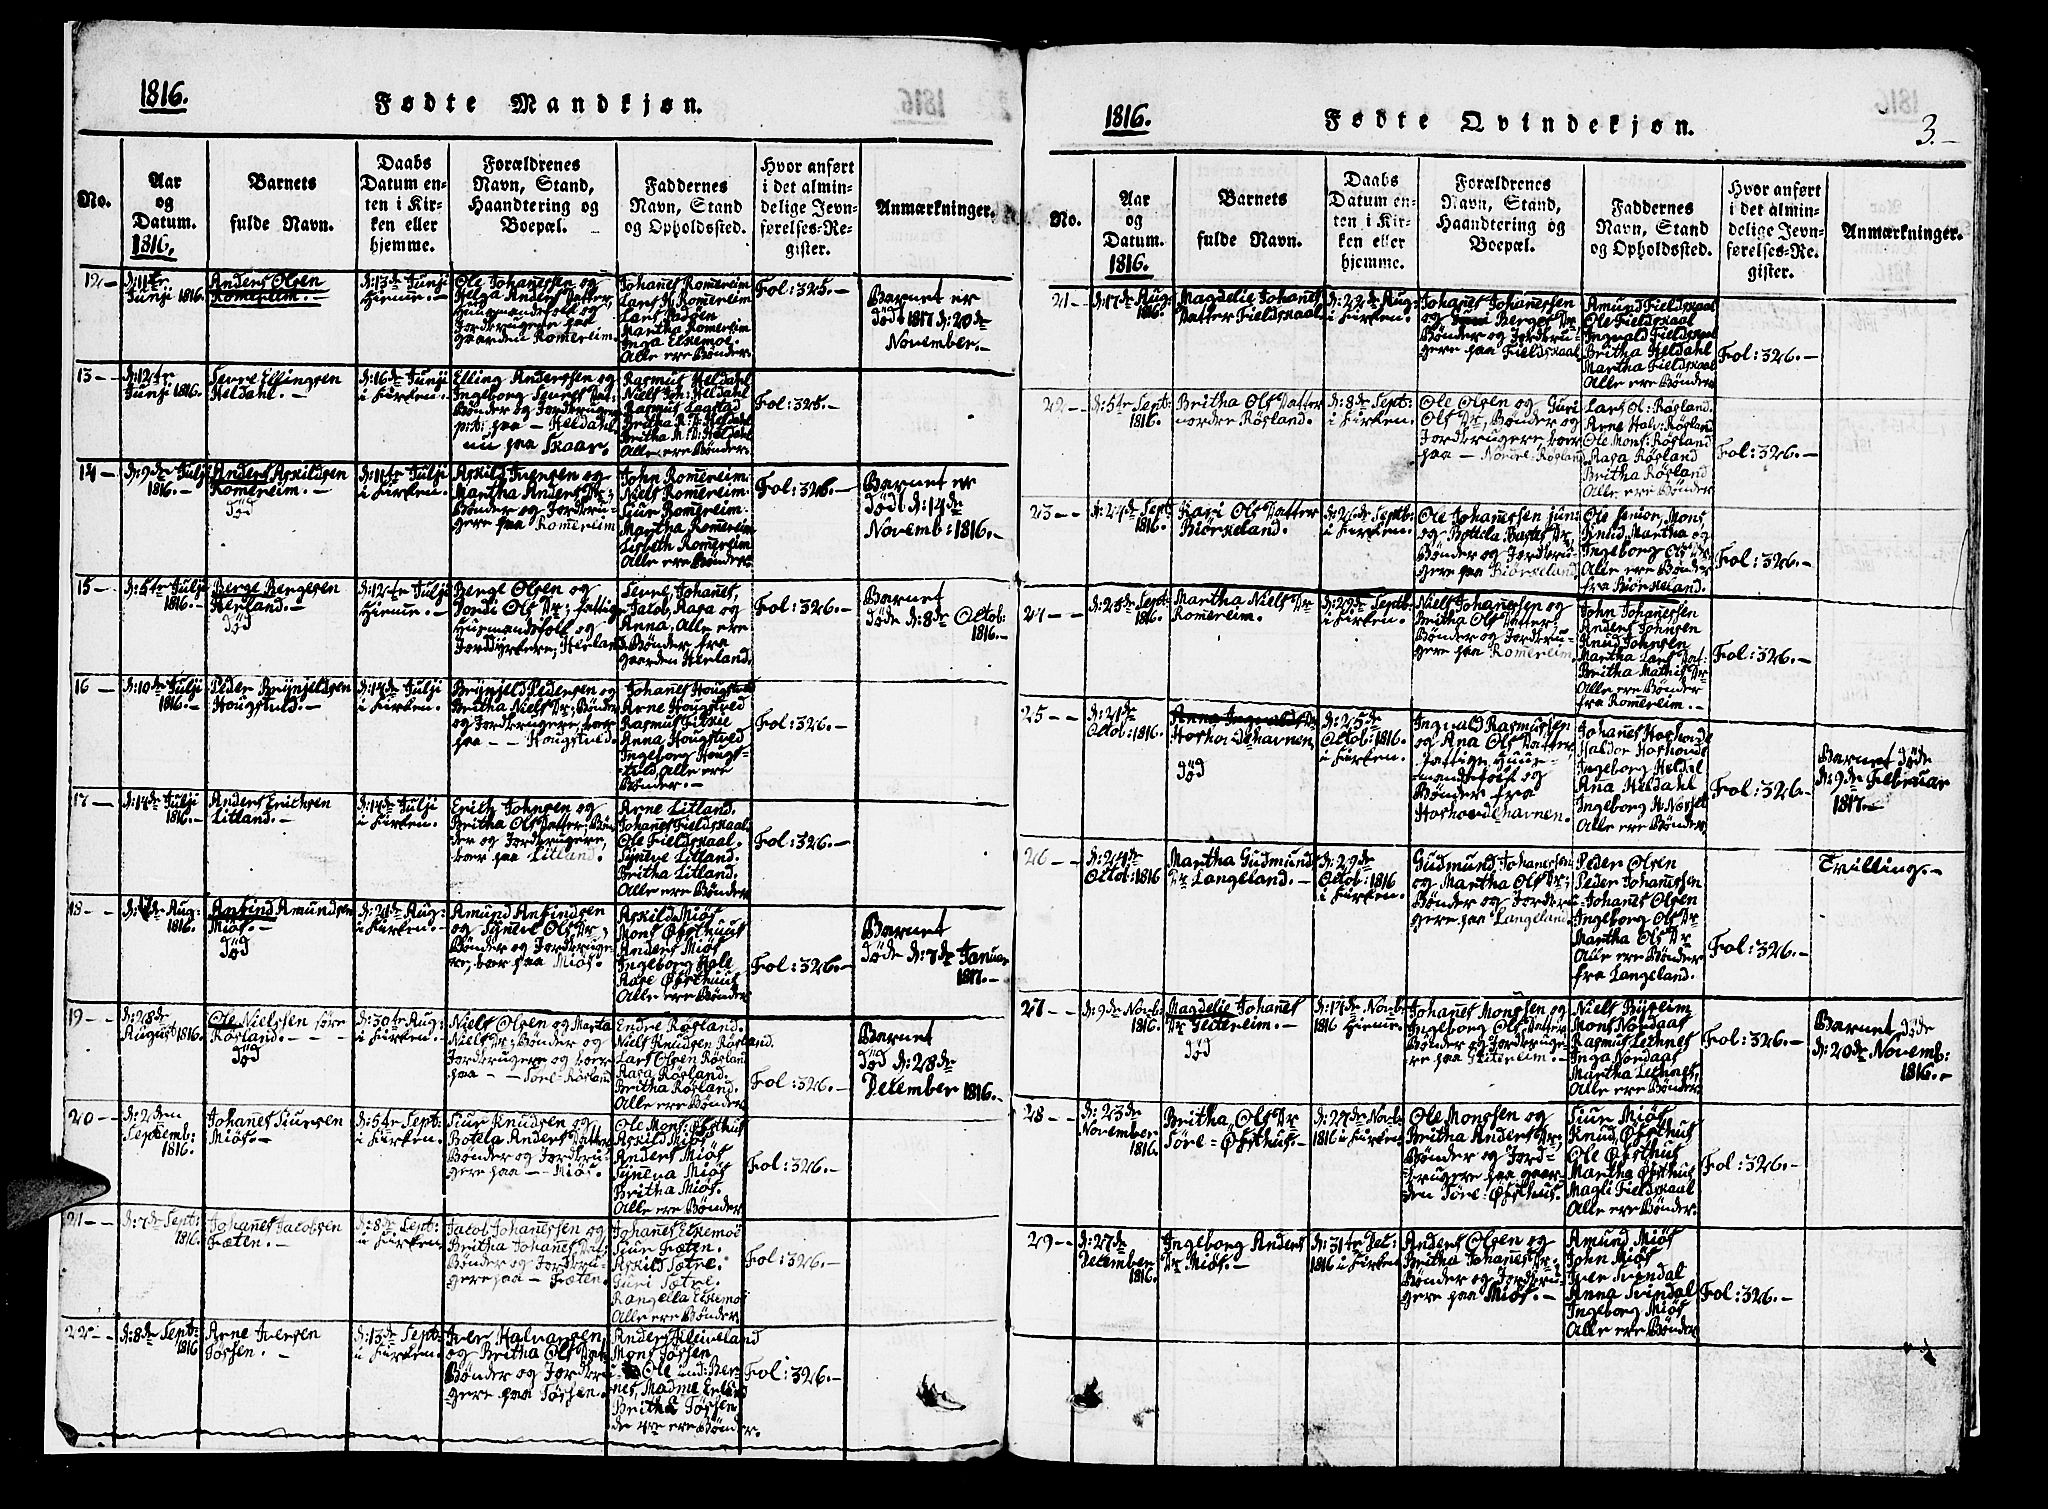 1816.
Fødte Mandkjøn.
No.
Aar
og
Datum.
1816.
Barnets
fulde Navn.
Daabs
Datum en-
ten i Kir-
ken eller
hjemme.
Forældrenes
Navn, Stand,
Haandtering og
Boepæl.
Faddernes
Navn, Stand
og Opholdssted.
Hvor anført
i det almin-
delige Jevn-
førelses-Re-
gister.
Anmærkninger.
12 -
d: 11te
Junji 1816.
Anders Olsen
Romereim.
d: 13de Junji
hjemme. -
Ole Johanessen og
Helga Anders Datter,
Huusmandsfolk og
Jordbrugere paa
gaarden Romereim.
Johanes Romereim
Lars H. Romereim
Martha Romereim
Inga Elkemoe.
Alle ere Bønder.
Fol: 325. -
Barnet er
død 1817 d: 20de
November. -
13 -
d: 12te
Junji 1816.
Sevre Ellingsen
Heldahl. -
d: 16de Junji
i Kirken. -
Elling Anderssen og
Ingeborg Sevres Dat:
Bønder og Jordbrugere
paa - Heldahl.
nu paa Skaar.
Rasmus Heldahl
Niels Joh: Heldahl
Rasmus Aastad
Britha N: H: Heldahl
Britha M: D: Heldahl
Alle ere Bønder.
Fol: 325. -
14 -
d: 9de Julji
1816. -
Anders Askildsen
Romereim. -
død
d: 11te Julji
i Kirken. -
Askild Iversen og
Martha Anders Dr;
Bønder og Jordbru-
gere paa Romereim
John Romereim.
Niels Romereim.
Siur Romereim.
Martha Romereim
Lisbeth Romereim
Alle ere Bønder.
Fol: 326. -
Barnet er
Død d: 14de
Novemb: 1816. -
15 -
d: 5te Julji
1816. -
Berge Bergesen
Herland. -
død
d: 12te Julji
hjemme. -
Berge Olsen og
Jordi Ols Dr; fattige
Huusmandsfolk og
Jorddyrkere; Herland
Sevre, Johanes,
Jacob, Aasa og
Anna, Alle ere
Bønder fra
gaarden Herland.
Fol: 326. -
Barnet
døde d: 8de Octob:
1816. -
16 -
d: 10de Julji
1816. -
Peder Brynjeldsen
Hougstvld. -
d: 14de Julji
i Kirken. -
Brynjeld Pedersen og
Britha Niels Dr; Bønder
og Jordbrugere, boer
paa - - Hougstved.
Johanes Hougstved
Arne Hougstved
Rasmus Fitkie
Anna Hougstved
Ingeborg Hougs-
tvld, Alle ere
Bønder. -
Fol: 326. -
17 -
d: 14de Julji
1816. -
Anders Erichsen
Litland. -
d: 14de Julji
i Kirken. -
Erich Johnsen og
Britha Ols Datter; Bøn
der og Jordbrugere,
boer paa Litland.
Arne Litland.
Johanes Fieldskaal.
Ole Fieldskaal.
Syneve Litland.
Britha Litland.
Alle ere Bønder
Fol: 326. -
18 - -
Aug:
1816.
Anfind Amundsen
Miøs. -
død
d: 21de Aug:
i Kirken. -
Amund Anfindsen
og Syneve Ols Dr;
Bønder og Jordbruge-
re, boer paa Miøs.
Askild Miøs
Mons Øfsthuus
Anders Miøs
Ingeborg Hole
Aase Øfsthuus
Alle ere Bønder
Fol: 326. -
Barnet
døde d: 7de Januar
1817. -
19 - -
d: 28de
August 1816.
Ole Nielssen søre
Røsland. - - -
død
d: 30te Aug:
i Kirken. -
Niels Olsen og Marta
Niels Dr; Bønder og
Jordbrugere og boer
paa - - Søre-Røsland
Endre Røsland.
Niels Knudsen Røsland.
Lars Olsen Røsland
Aasa Røsland.
Britha Røsland.
Alle ere Bønder
Fol: 326. -
Barnet
død d: 28de
December 1816. -
20 - -
d: 2den
Septemb:
1816.
Johanes Siursen
Miøs. -
d: 5te Sept:
i Kirken. -
Siur Knudsen og
Botela Anders Datter
Bønder og Jordbru-
gere paa - Miøs.
Ole Mons: Øfsthus
Askild Miøs
Anders Miøs
Synena Miøs
Britha Miøs.
Alle ere Bønder
Fol: 326. -
21 - -
d: 7de Sept:
1816.
Johanes Jacobsen
Træten. -
d: 8de Sept:
i Kirken.
Jacob Johanessen og
Britha Johanes Dat:
Bønder og Jordbru-
gere paa - Træten.
Johanes Elkemoe
Siur Træten.
Askild Sætre.
Guri Sætre.
Rangella Elkemoe
Alle ere Bønder
Fol: 326. -
22 - -
d: 8de Sept:
1816
Arne Iversen
Tøssen. -
d: 13de Sept:
i Kirken.
Iver Halvorsen
og Britha Ols Dat:
Bønder og Jordbru-
gere paa Tøssen.
Anders Kleiveland
Mons Tøssen
Britha Tøssen
Fol: 326. -
1816.
Fødte Qvindekjøn.
3. -
No.
Aar
og
Datum.
1816.
Barnets
fulde Navn.
Daabs
Datum en-
ten i Kir-
ken eller
hjemme.
Forældrenes
Navn, Stand,
Haandtering og
Boepæl.
Faddernes
Navn, Stand
og Opholdssted.
Hvor anført
i det almin-
delige Jevn-
førelses-Re-
gister.
Anmærkninger.
21 -
d: 17de Aug:
1816.
Magdelie Johanes
Datter Fieldskaal
d: 22de Aug:
i Kirken.
Johanes Johanessen
og Berges Dr
Bønder og Jordbru-
gere paa Fieldskaal
Amund Fieldskaal
Ole Fieldskaal
Ingvald Fieldskaal
Britha Heldahl
Martha Fieldskaal
Alle ere Bønder
Fol: 326. -
22 -
d: 5te Sept:
1816.
Britha Ols Datter
nordre Røsland.
d: 8de Sept:
i Kirken.
Ole Olsen og Guri
Ols Dr, Bønder og
Jordbrugere, boer
paa - Nordre-Røsland
Lars Ol: Røsland.
Arne Halv: Røsland
Ole Mons: Røsland
Aasa Røsland
Britha Røsland
Alle ere Bønder
Fol: 326. -
23 - -
d: 24de Sept
1816.
Kari Ols Datter
Biørkeland.
d: 26de Septb:
i Kirken.
Ole Johanessen jun:
og Botilla Baars Dr,
Bønder og Jordbru-
gere paa Biørkeland
Ole senior, Mons,
Knud, Martha og
Ingeborg Ols Dr
Alle ere Bønder
fra Biørkeland.
Fol: 326. -
24 - -
d: 28de Sept:
1816.
Martha Niels Dr
Romereim.
d: 29de Septb:
i Kirken.
Niels Johanessen og
Britha Ols Datter
Bønder og Jordbru-
gere paa Romereim.
John Johanessen
Anders Johnsen
Knud Johnsen
Martha Lars Dat:
Britha Mathis Dr
Alle ere Bønder
fra Romereim. -
Fol: 326. -
25 - -
d: 21de
Octob: 1816.
Anna Ingvalds Dr
Hoshovdehavnen
død
d: 25de
Octob: 1816.
i Kirken.
Ingvald Rasmussen
og Ana Ols Datter
fattige Huus-
mandsfolk og
Bønder fra
Hoshovdehavnen.
Johanes Hoshovde
Haldor Hoshovde
Ingeborg Heldal
Ana Heldahl
Ingeborg H: Norset
Alle ere Bønder
Fol: 326. -
Barnet døde
d: 9de Februar
1817. -
26 - -
d: 24de
Octob: 1816
Martha Gudmunds
Dr Langeland. -
d: 29de
Octob: 1816
i Kirken.
Gudmund Johanessen
og Martha Ols Dr;
Bønder og Jordbru-
gere paa Langeland.
Peder Olsen
Peder Johanessen
Johanes Olsen
Ingeborg Ols Dr
Martha Ols Dr
Alle ere Bønder
fra Langeland.
Fol: 326. -
Tvilling. -
27 - -
d: 9de Novb:
1816.
Magdelie Johanes
Dr Geitereim. -
død
d: 14de Novb:
1816 hjemme.
Johanes Monssen og
Ingeborg Ols Datter
Bønder og Jordbruge-
re paa Geitereim. -
Niels Byreim
Mons Nordaas
Rasmus Lechnes
Inga Nordaas
Martha Lechnes,
Alle ere Bønder
Fol: 326. -
Barnet døde
d: 20de Novemb:
1816. -
28 -
d: 23de
November
1816.
Britha Ols Dr
Søre-Øfsthus. -
d: 27de Novb:
1816 i Kirken.
Ole Monssen og
Britha Anders Dr;
Bønder og Jord-
brugere paa gaar-
den Søre-Øfsthus.
Siur Miøs
Knud Øfsthus
Ole Øfsthus
Martha Øfsthus
Magli Fieldskaal
Alle ere Bønder.
Fol: 326. -
29 - -
d: 27de
December
1816.
Ingeborg Anders
Dr Miøs. -
d: 31te Dec:
1816 i Kirken
Anders Olsen og
Britha Johanes Dr.
Bønder og Jordbru-
gere paa Miøs. -
Amund Miøs
John Miøs
Iver Svendal
Anna Svindal
Ingeborg Miøs
Alle ere Bønder
Fol: 326. -